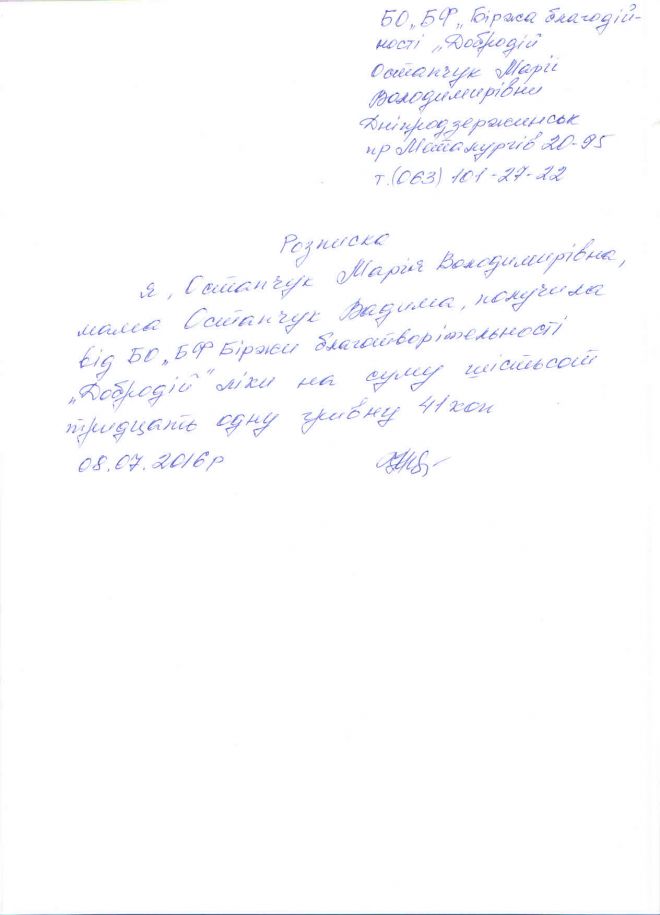 БО „БФ „Біржа благодій-
ності „Добродій
Остапчук Марії
Володимирівни
Дніпродзержинськ
пр Металургів 20-95
т.(063) 101-27-22
Розписка
Я, Остапчук Марія Володимирівна,
мама Остапчук Вадима, получила
від БО „БФ Біржи благотворітельності
„Добродій" ліки на суму шістьсот
тридцать одну гривну 41 коп
08.07.2016р